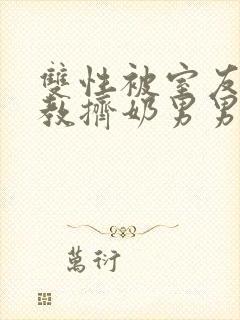 雙性被室友
教擠奶男男
萬衍